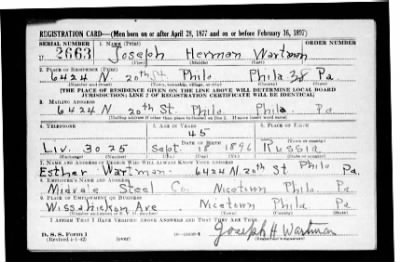 REGISTRATION CARD—(Men born on or after April 28, 1877 and on or before February 16, 1897)
SERIAL NUMBER 1. NAME (Print) ORDER NUMBER
2663 Joseph Herman Wartman
(First) (Middle) (Last)
2. PLACE OF RESIDENCE (Print)
6424 N 20th St Phila Phila 38 Pa
(Number and street) (Town, township, village, or city) (County) (State)
[THE PLACE OF RESIDENCE GIVEN ON THE LINE ABOVE WILL DETERMINE LOCAL BOARD
JURISDICTION; LINE 2 OF REGISTRATION CERTIFICATE WILL BE IDENTICAL]
3. MAILING ADDRESS
6424 N 20th St. Phila Phila Pa
[Mailing address if other than place indicated on line 2. If same insert word same]
4. TELEPHONE 5. AGE IN YEARS 6. PLACE OF BIRTH
45
DATE OF BIRTH (Town or county)
Liv. 3025 Sept. 18 1896 Russia
(Exchange) (Number) (Mo.) (Day) (Yr.) (State or country)
7. NAME AND ADDRESS OF PERSON WHO WILL ALWAYS KNOW YOUR ADDRESS
Esther Wartman 6424 N. 20th St Phila Pa.
8. EMPLOYER'S NAME AND ADDRESS
Midvale Steel Co. Nicetown Phila. Pa
9. PLACE OF EMPLOYMENT OR BUSINESS
Wissahickon Ave Nicetown Phila Pa
(Number and street or R. F. D. number) (Town) (County) (State)
I AFFIRM THAT I HAVE VERIFIED ABOVE ANSWERS AND THAT THEY ARE TRUE.
D. S. S. Form 1
(Revised 4-1-42) (over) Joseph H Wartman
(Registrant's signature)